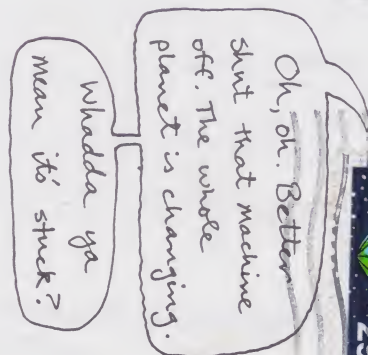 Oh, oh. Better
shut that machine
off. The whole
planet is changing.
Whadda ya
mean it's stuck?